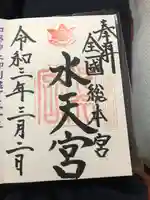 奉拝
全國総本宮
水天宮
令和三年三月二日